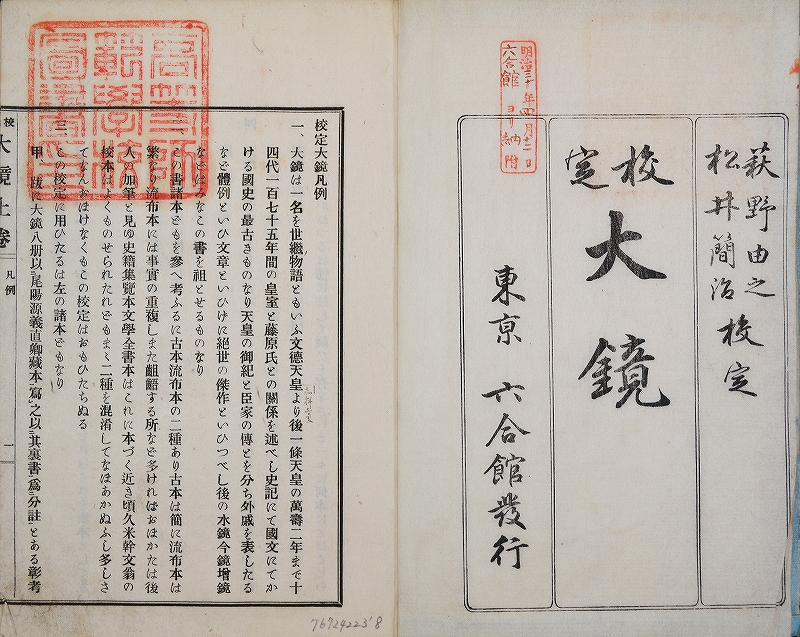 明治三十年四月十二日
六合館ヨリ納附
萩野由之
松井簡治校定
校定
大鏡
東京 六合館發行
校定大鏡凡例
一、大鏡は一名を世繼物語ともいふ文德天皇より後一條天皇の萬壽二年まで十
四代一百七十五年間の皇室と藤原氏との關係を述べし史記にて國文にてか
ける國史の最古きものなり天皇の御紀と臣家の傳とを分ち外戚を表したる
など體例といひ文章といひけに絶世の傑作といひつべし後の水鏡今鏡增鏡
などはみなこの書を祖とせるものなり
一、この書諸本どもを參へ考ふるに古本流布本の二種あり古本は簡に流布本は
繁なり流布本には事實の重複しまた齟齬する所など多ければおほかたは後
人の加筆と見ゆ史籍集覽本文學全書本はこれに本づく近き頃久米幹文翁の
校本はよくものせられたれどもまゝ二種を混淆してなほあかぬふし多しさ
てなんおほけなくもこの校定はおもひたちぬる
三、この校定に用ひたるは左の諸本どもなり
甲、跋に大鏡八册以尾陽源義直卿藏本寫之以其裏書爲分註とある彰考
校 大鏡上卷 凡例 一
7672422378